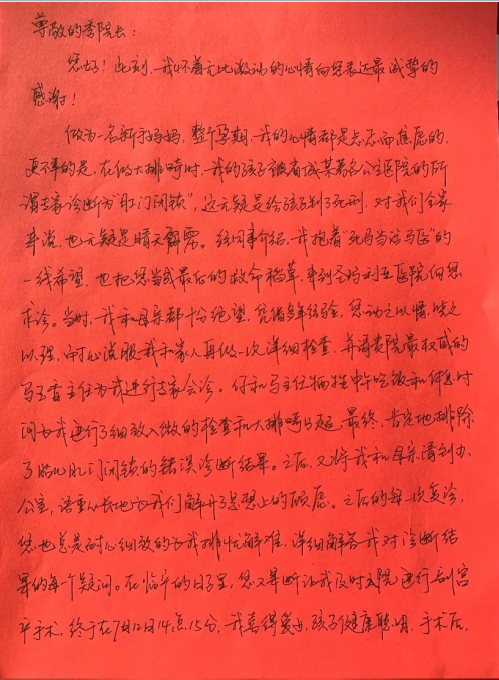 尊敬的李院长:
您好!此刻,我怀着无比激动的心情向您表达最诚挚的
感谢!
做为一名新手妈妈,整个孕期,我的心情都是忐忑而焦虑的,
更不幸的是,在做大排畸时,我的孩子被省城某著名公立医院的所
谓专家诊断为"肛门闭锁",这无疑是给孩子判了死刑,对我们全家
来说,也无疑是晴天霹雳。经同事介绍,我抱着"死马当活马医"的
一线希望,也把您当成最后的救命稻草,来到圣玛利亚医院向您
求诊。当时,我和母亲都十分绝望,凭借多年经验,您动之以情,晓之
以理,耐心说服我和家人再做一次详细检查,并请贵院最权威的
马玉香主任为我进行专家会诊。您和马主任牺牲中午吃饭和休息时
间为我进行了细致入微的检查和大排畸B超,最终,肯定地排除
了胎儿肛门闭锁的错误诊断结果。之后,又将我和母亲请到办
公室,语重心长地为我们解开了思想上的顾虑。之后的每一次复诊,
您也总是耐心细致的为我排忧解难,详细解答我对诊断结
果的每个疑问。在临产的日子里,您又果断让我及时入院进行剖宫
产手术,终于在7月12日14点15分,我喜得爱女,孩子健康聪明,手术后,